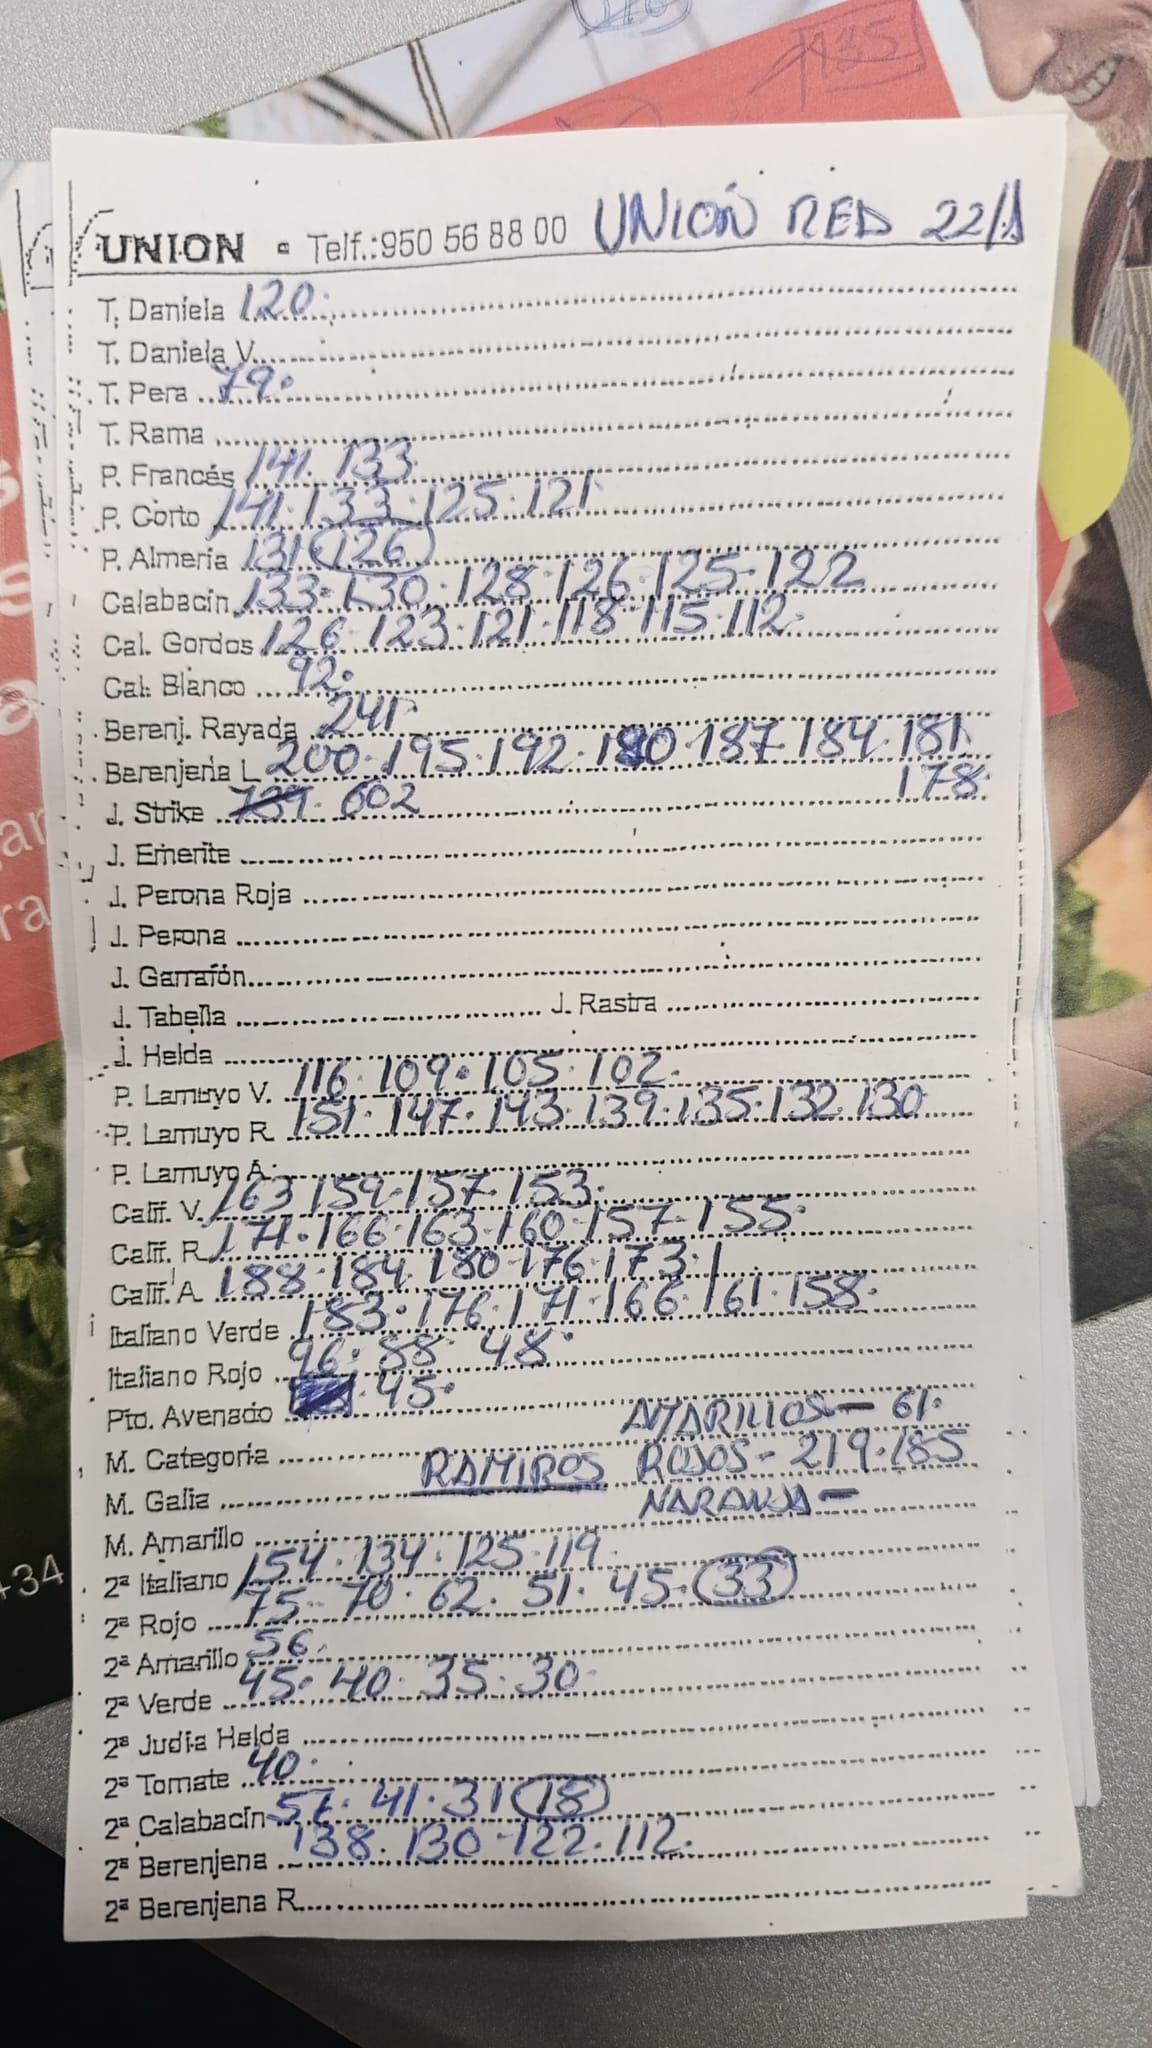 UNION - Telf.:950 56 88 00 UNION RED 22/1
T. Daniela 120.
T. Daniela V.
T. Pera 79.
T. Rama
P. Francés 141. 133
P. Corto 141. 133. 125. 121
P. Almería 131. 126
Calabacín 133. 130. 128. 126. 125. 122
Cal. Gordos 126. 123. 121. 118. 115. 112.
Cal. Blanco 92.
Berenj. Rayada 241.
Berenjena L 200. 195. 192. 180. 187. 184. 181.
178
J. Strike 602
J. Emerite
J. Perona Roja
J. Perona
J. Garrafón
J. Tabella J. Rastra
J. Helda
P. Lamuyo V. 116. 109. 105. 102.
P. Lamuyo R. 151. 147. 143. 139. 135. 132 130
P. Lamuyo A.
Calif. V. 163 159. 157. 153.
Calif. R. 171. 166. 163. 160. 157. 155.
Calif. A. 188. 184. 180. 176. 173.
Italiano Verde 183. 176. 171. 166. 161. 158.
Italiano Rojo 96. 88. 48.
Pto. Avenado 45.
AMARILLOS - 61.
M. Categoría
RAMIROS ROJOS - 219. 185
M. Galia
NARANJA -
M. Amarillo
2ª Italiano 154. 134. 125. 119.
2ª Rojo 75. 70. 62. 51. 45. 33
2ª Amarillo 56.
2ª Verde 45. 40. 35. 30.
2ª Judía Helda
2ª Tomate 40.
2ª Calabacín 41. 31 18
2ª Berenjena 138. 130. 122. 112.
2ª Berenjena R.
135
+34